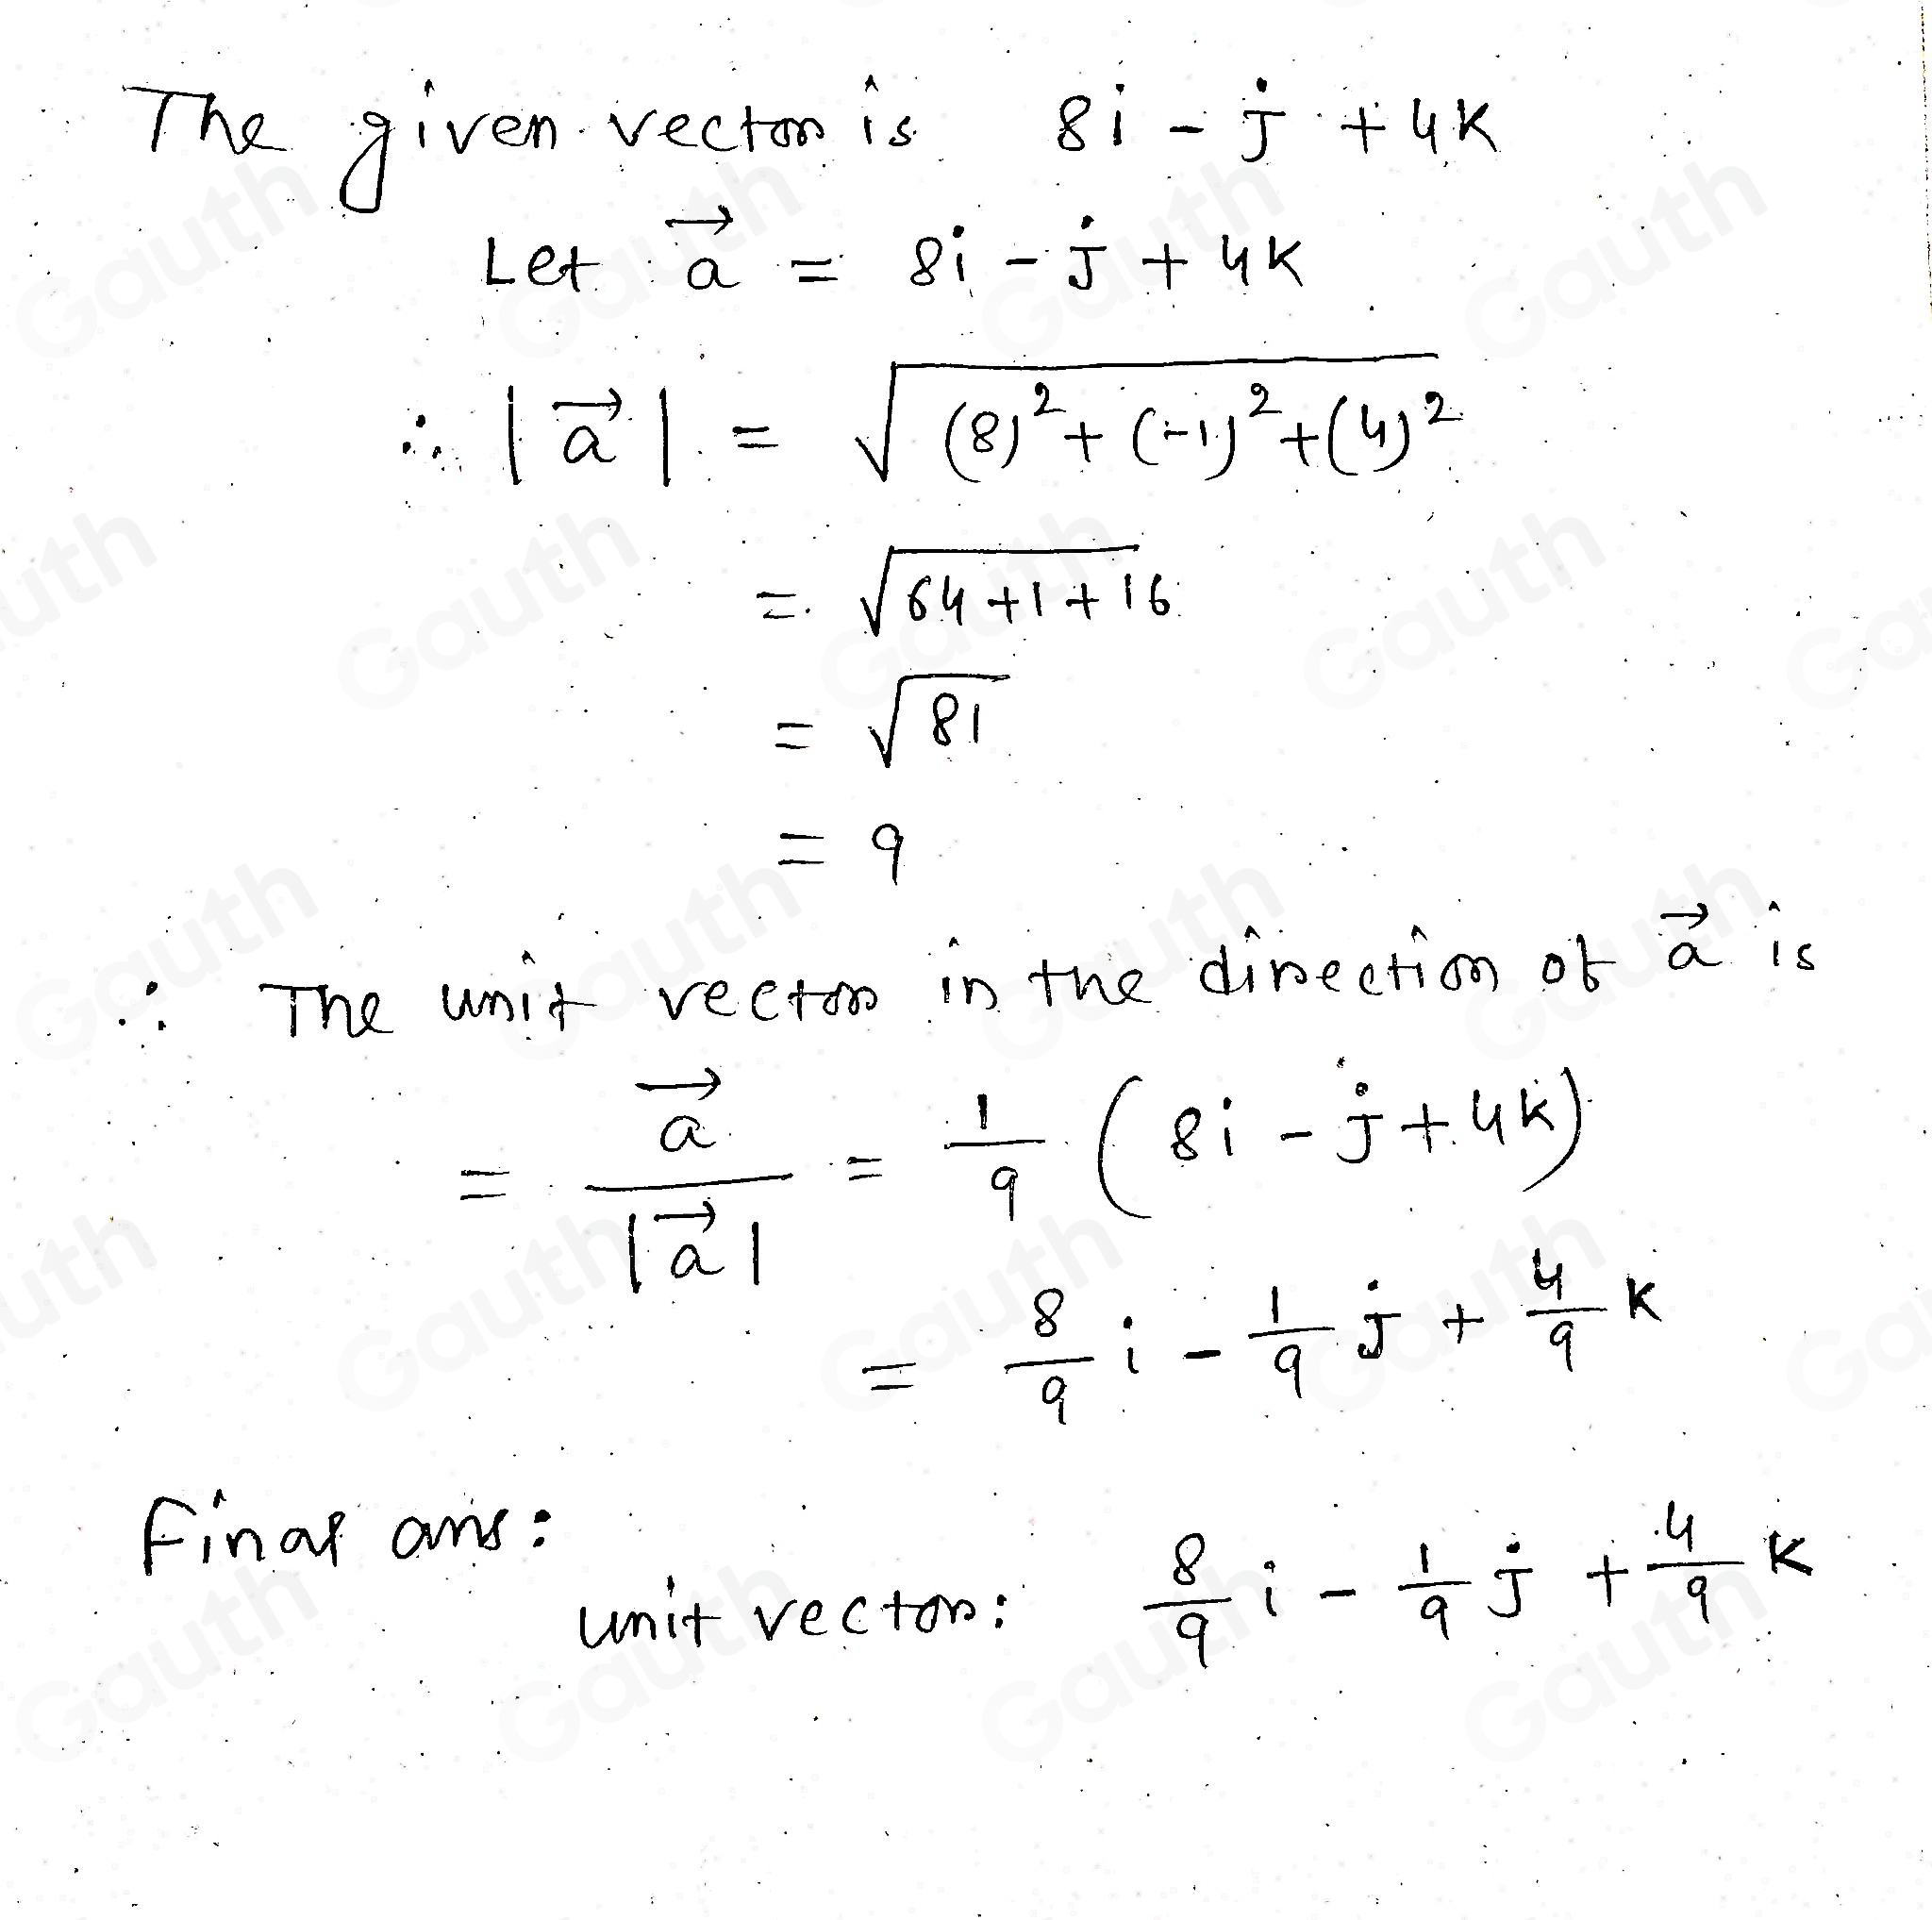 The given vector is 8i - j + 4k
Let →a = 8i - j + 4k
∴ |→a| = √(8)² + (-1)² + (4)²
= √64 + 1 + 16
= √81
= 9
∴ The unit vector in the direction of →a is
= →a / |→a| = 1/9 (8i - j + 4k)
= 8/9 i - 1/9 j + 4/9 k
Final ans:
unit vector: 8/9 i - 1/9 j + 4/9 k
Gauth